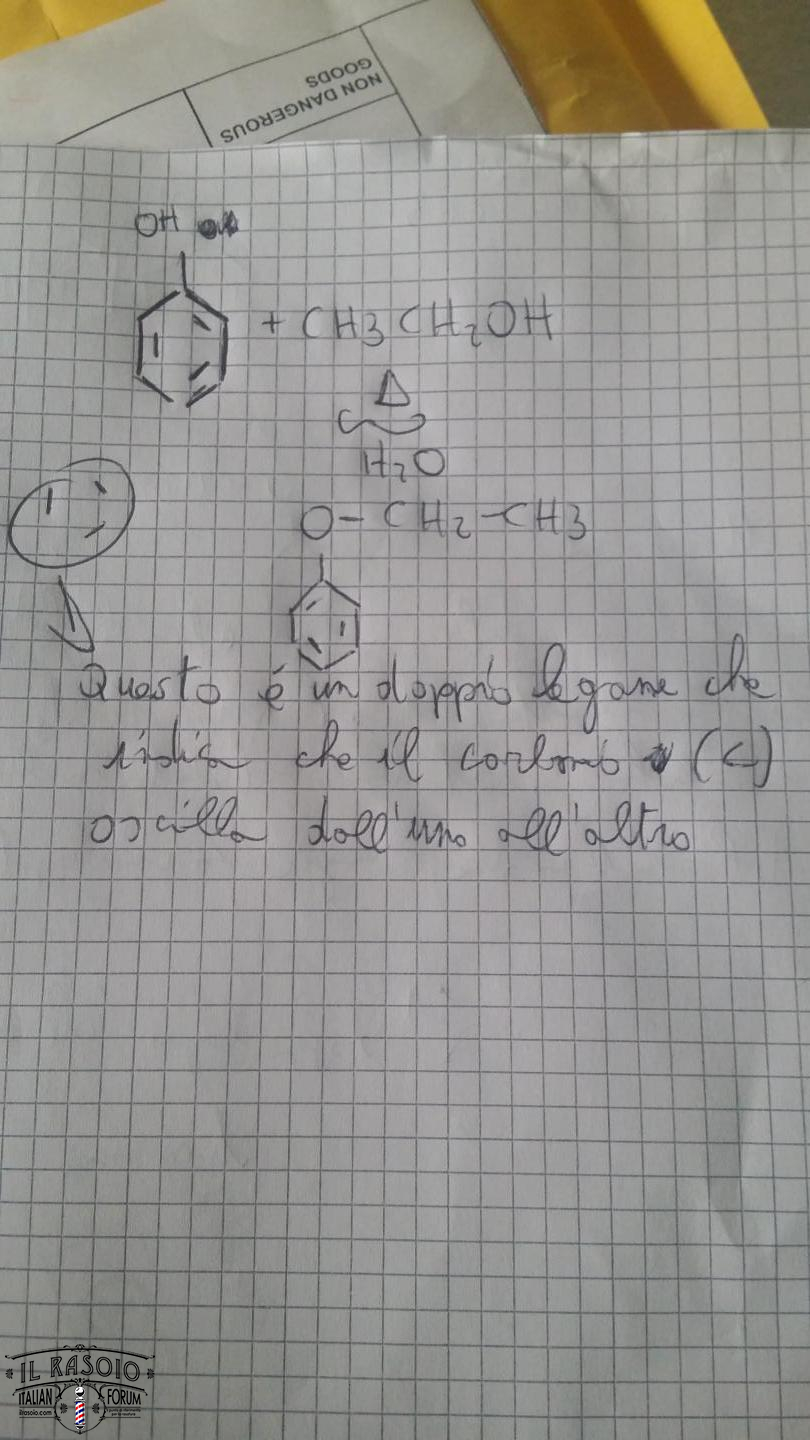 NON DANGEROUS
GOODS
OH
+ CH3CH2OH
Δ
H2O
O-CH2-CH3
Questo é un doppio legame che
che il carbonio (C)
oscilla dall'uno all'altro
IL RASOIO
ITALIAN FORUM
ilrasoio.com